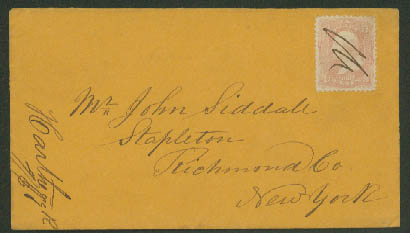 Mr John Siddall
Stapleton
Richmond Co.
New York